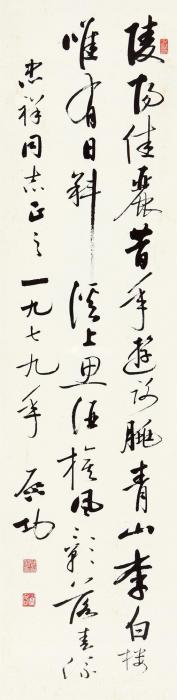 陵阳佳麗昔年遊谢朓青山李白楼
唯有日斜溪上思酒旗风影落春流
忠祥同志正之一九七九年 启功